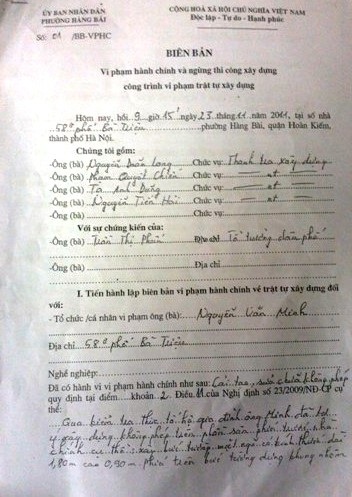 ỦY BAN NHÂN DÂN
PHƯỜNG HÀNG BÀI
Số: 01 /BB-VPHC
CỘNG HOÀ XÃ HỘI CHỦ NGHĨA VIỆT NAM
Độc lập - Tự do - Hạnh phúc
BIÊN BẢN
Vi phạm hành chính và ngừng thi công xây dựng
công trình vi phạm trật tự xây dựng
Hôm nay, hồi 9 giờ 15' ngày 23 tháng 11 năm 2011, tại số nhà
58a phố Bà Triệu phường Hàng Bài, quận Hoàn Kiếm,
thành phố Hà Nội.
Chúng tôi gồm:
-Ông (bà) Nguyễn Long Chức vụ: Thanh tra xây dựng
-Ông (bà) Phạm Quyết Chiến Chức vụ: nt
-Ông (bà) Tô Anh Dũng Chức vụ: nt
-Ông (bà) Nguyễn Tiến Hải Chức vụ:
-Ông (bà) Chức vụ:
Với sự chứng kiến của:
Trần Thị Địa chỉ Tổ trưởng dân phố
-Ông (bà) Địa chỉ
I. Tiến hành lập biên bản vi phạm hành chính về trật tự xây dựng đối
với:
- Tổ chức /cá nhân vi phạm ông (bà): Nguyễn Văn Minh
Địa chỉ 58a phố Bà Triệu
Nghề nghiệp:
Đã có hành vi vi phạm hành chính như sau: Cải tạo, sửa chữa không phép
quy định tại điểm khoản 2. Điều 11 của Nghị định số 23/2009/NĐ-CP cụ
thể:
Qua kiểm tra thực tế hộ gia đình ông Minh đã
xây dựng không phép trên phần sân phía trước nhà
chính cụ thể: xây bức tường gạch có kích thước dài
1,80m cao 0,90m phía trên bức tường dựng khung nhôm